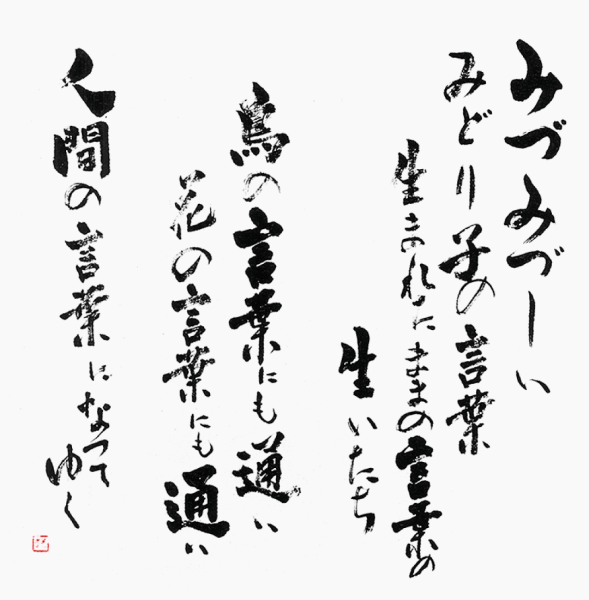 みづみづしい
みどり子の言葉
生まれたままの言葉の
生いたち
鳥の言葉にも通い
花の言葉にも通い
人間の言葉になって
ゆく